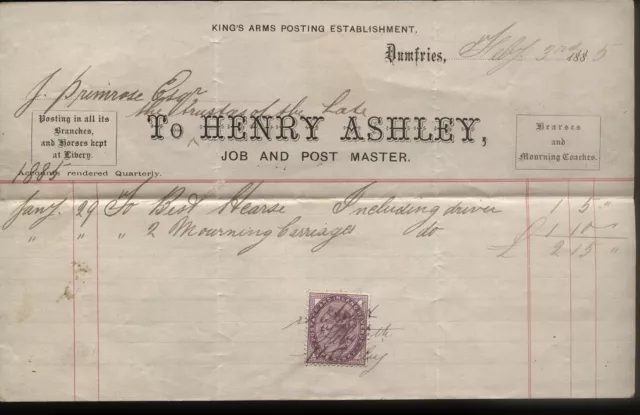 KING'S ARMS POSTING ESTABLISHMENT.
Dumfries, Feby 3rd 1885
J. Primrose Esqr
the trustees of the late
Posting in all its
Branches,
and Horses kept
at Livery.
To HENRY ASHLEY,
JOB AND POST MASTER.
Hearses
and
Mourning Coaches.
Accounts rendered Quarterly.
1885
Jany. 29 To Best Hearse Including driver 1 5 "
" " " 2 Mourning Carriages do 1 10 "
£ 2 15 "